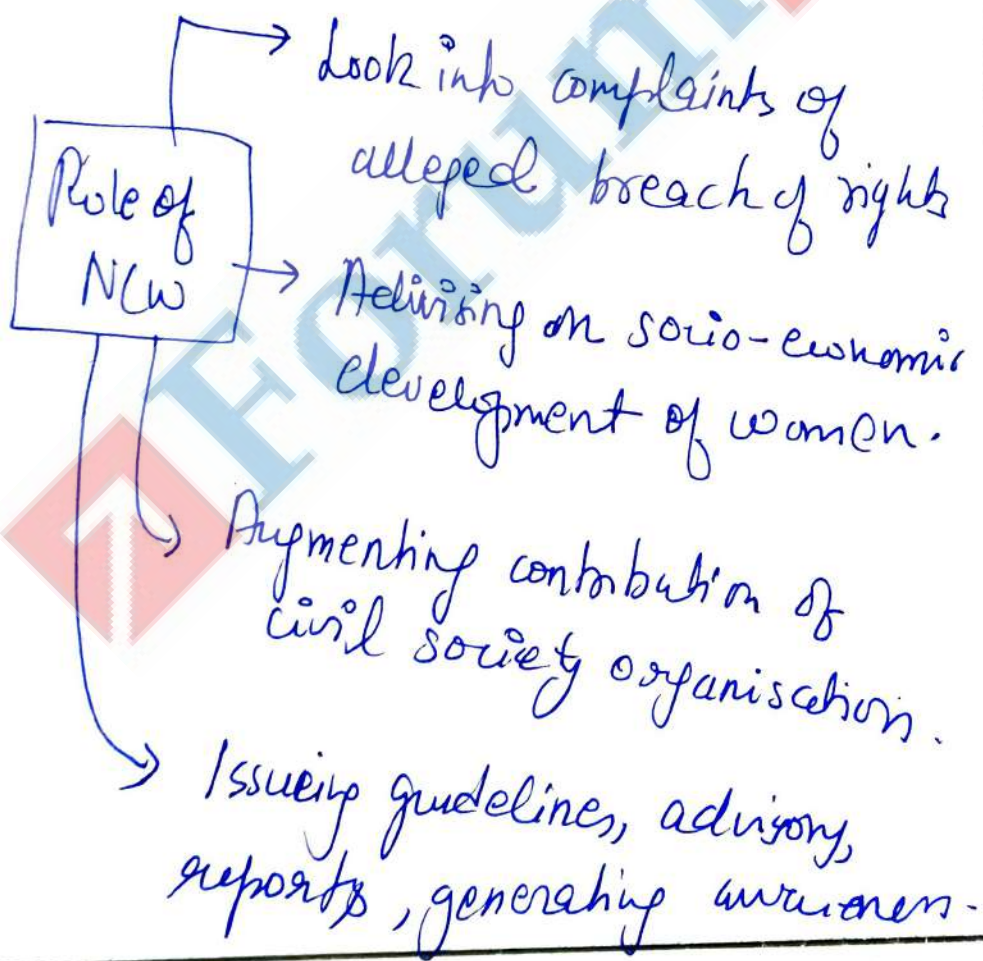 Look into complaints of
alleged breach of rights
Role of
NCW
Advising on socio-economic
development of women.
Augmenting contribution of
civil society organisation.
Issueing guidelines, advisory,
reports, generating awareness.
Forum